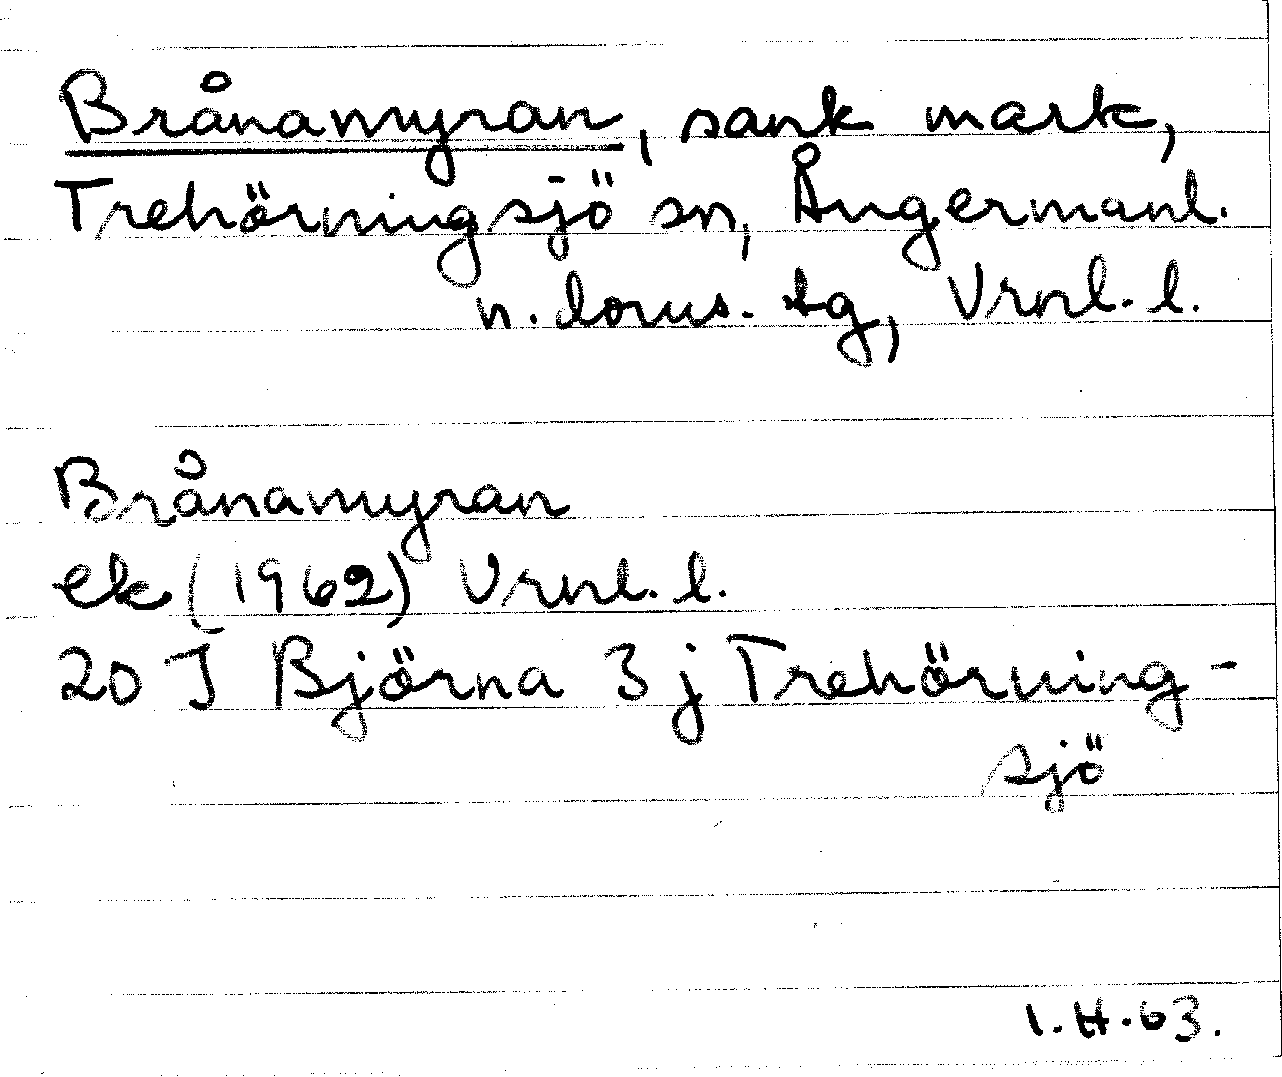 Brånamyran, sank mark,
Trehörningsjö sn, Ångermanl.
n. doms. tg, Vrnl. l.
Brånamyran
ek (1962) Vrnl. l.
20 J Björna 3 j Trehörning-
sjö
I.H.63.